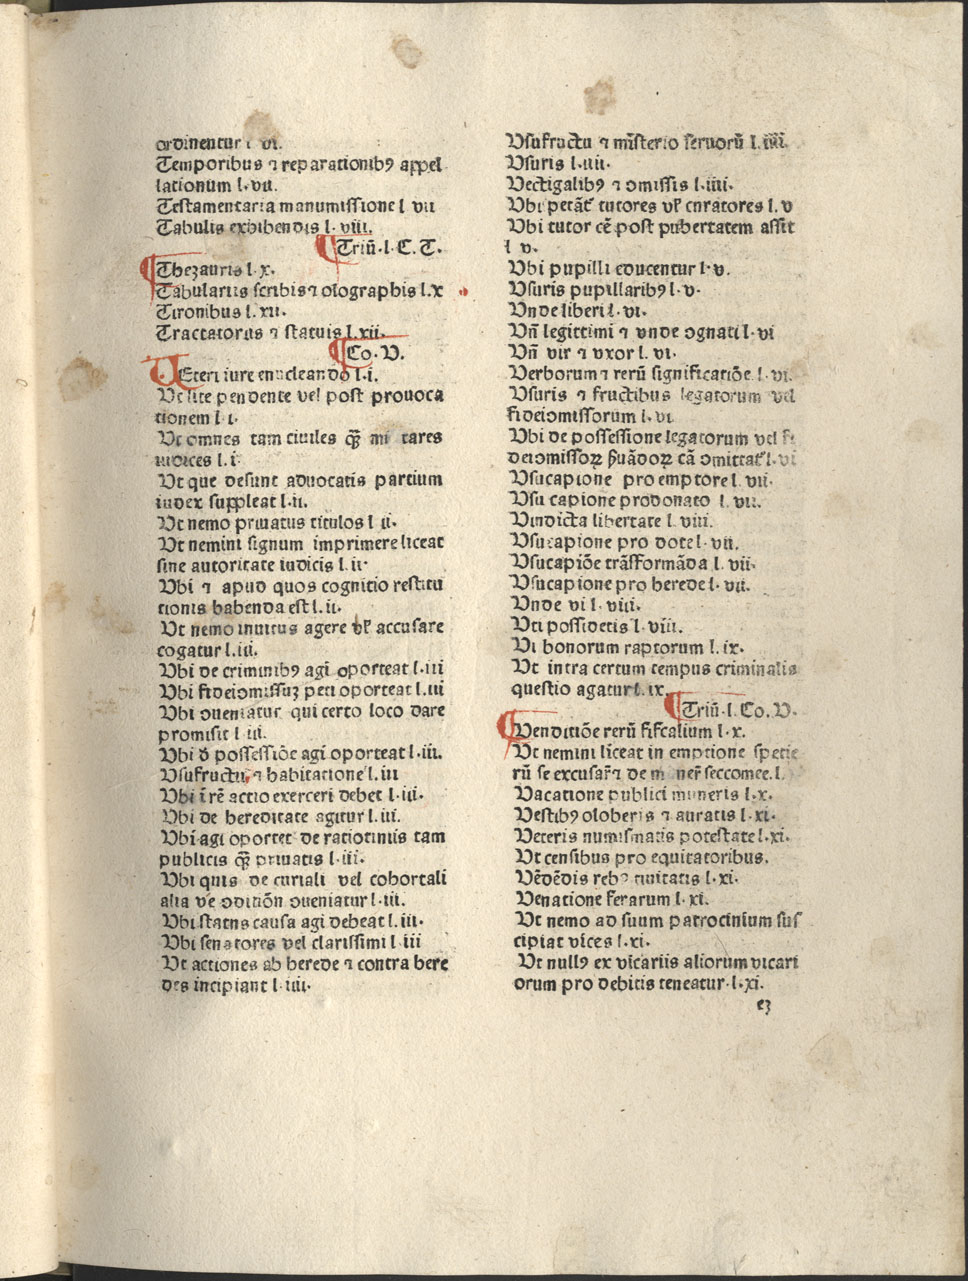 ordinentur l vi.
Temporibus ⁊ reparationibꝰ appel
lationum l·vii.
Testamentaria manumissione l vii
Tabulis exhibendis l·viii.
Triū·l·C.T.
Thezauris l·x.
Tabulariis scribis ⁊ ologrаphis l.x
Tironibus l.xii.
Tractatorus ⁊ statuis l.xii.
Co·V.
VEteri iure enucleando l·i.
Vt lite pendente vel post prouoca
tionem l·i·
Vt omnes tam ciuiles q̄ʒ mi tares
iudices l.i·
Vt que desunt aduocatis partium
iudex suppleat l·ii.
Vt nemo priuatus titulos l ii·
Vt nemini signum imprimere liceat
sine autoritate iudicis l.ii·
Vbi ⁊ apud quos cognitio restitu
tionis habenda est l.ii.
Vt nemo inuitus agere vl̕ accusare
cogatur l.iii.
Vbi de criminibꝰ agi oporteat l·iii
Vbi fideiↄmissuʒ peti oporteat l.iii
Vbi ↄueniatur qui certo loco dare
promisit l·iii.
Vbi đ possessiōe agi oporteat l·iii.
Vsufructu ⁊ habitatione l.iii
Vbi ī rē actio exerceri debet l·iii·
Vbi de hereditate agitur l.iii.
Vbi agi oportet de ratiotiniis tam
publicis q̄ʒ priuatis l·iii·
Vbi quis de curiali vel cohortali
alia ve ↄditiōn ↄueniatur l·iii.
Vbi status causa agi debeat l.iii·
Vbi senatores vel clarissimi l iii
Vt actiones ab herede ⁊ contra here
des incipiant l·iiii·
Vsufructu ⁊ misterio seruorū l.iiii.
Vsuris l·iiii·
Vectigalibꝰ ⁊ ↄmissis l.iiii.
Vbi petāt̕ tutores vl̕ curatores l.v
Vbi tutor cē post pubertatem assit
l v.
Vbi pupilli educentur l·v.
Vsuris pupillaribꝰ l·v·
Vnde liberi l·vi.
Vn̄ legittimi ⁊ vnde ↄgnati l·vi
Vn̄ vir ⁊ vxor l.vi.
Verborum ⁊ rerū significatiōe l·vi.
Vsuris ⁊ fructibus legatorum vel
fideiↄmissorum l·vi
Vbi de possessione legatorum vel fi
deiↄmissoꝝ ẜuādoꝝ cā ↄmittat̕ l·vi
Vsucapione pro emptore l vii·
Vsu capione prodonato l.vii.
Vindicta libertate l.viii.
Vsucapione pro dote l·vii.
Vsucapiōe trāsformāda l.vii·
Vsucapione pro herede l·vii.
Vnde vi l·viii.
Vti possidetis l·viii.
Vi bonorum raptorum l.ix.
Vt intra certum tempus criminalis
questio agatur l.ix.
Triū·l.Co.V.
Venditiōe rerū fiscalium l·x.
Vt nemini liceat in emptione specie
rū se excusar̕ ⁊ de m ner̕ seccomee.l.
Vacatione publici muneris l·x.
Vestibꝰ oloberis ⁊ auratis l·xi·
Veteris numismatis potestate l.xi.
Vt censibus pro equitatoribus.
Vēdēdis rebꝰ ciuitatis l·xi·
Venatione ferarum l·xi.
Vt nemo ad suum patrocinium sus
cipiat vices l.xi.
Vt nullꝰ ex vicariis aliorum vicari
orum pro debitis teneatur·l·xi.
eʒ